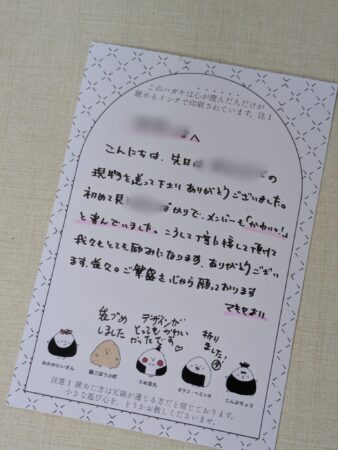 このハガキは心が澄んだ人だけが
読めるインクで印刷されています。注1
へ
こんにちは、先日 の
現物を送って下さり ありがとうございました。
初めて見 ばかりで、メンバーも「かわいい!」
と喜んでいました。こうして 様して頂けて
我々もとても励みになります。ありがとうござい
ます。益々のご繁盛を心から願っております
袋づめ
しました
デザインが
とってもかわい
かったです♡
祈り
ました!
おかかにいさん
鶏ごぼう小町
うめ若丸
ツナコ・ヘミング
こんぶちょう
注意1 読めた方は冗談が通じる方だと信じております。
小さな遊び心を、どうかお赦しくださいませ。